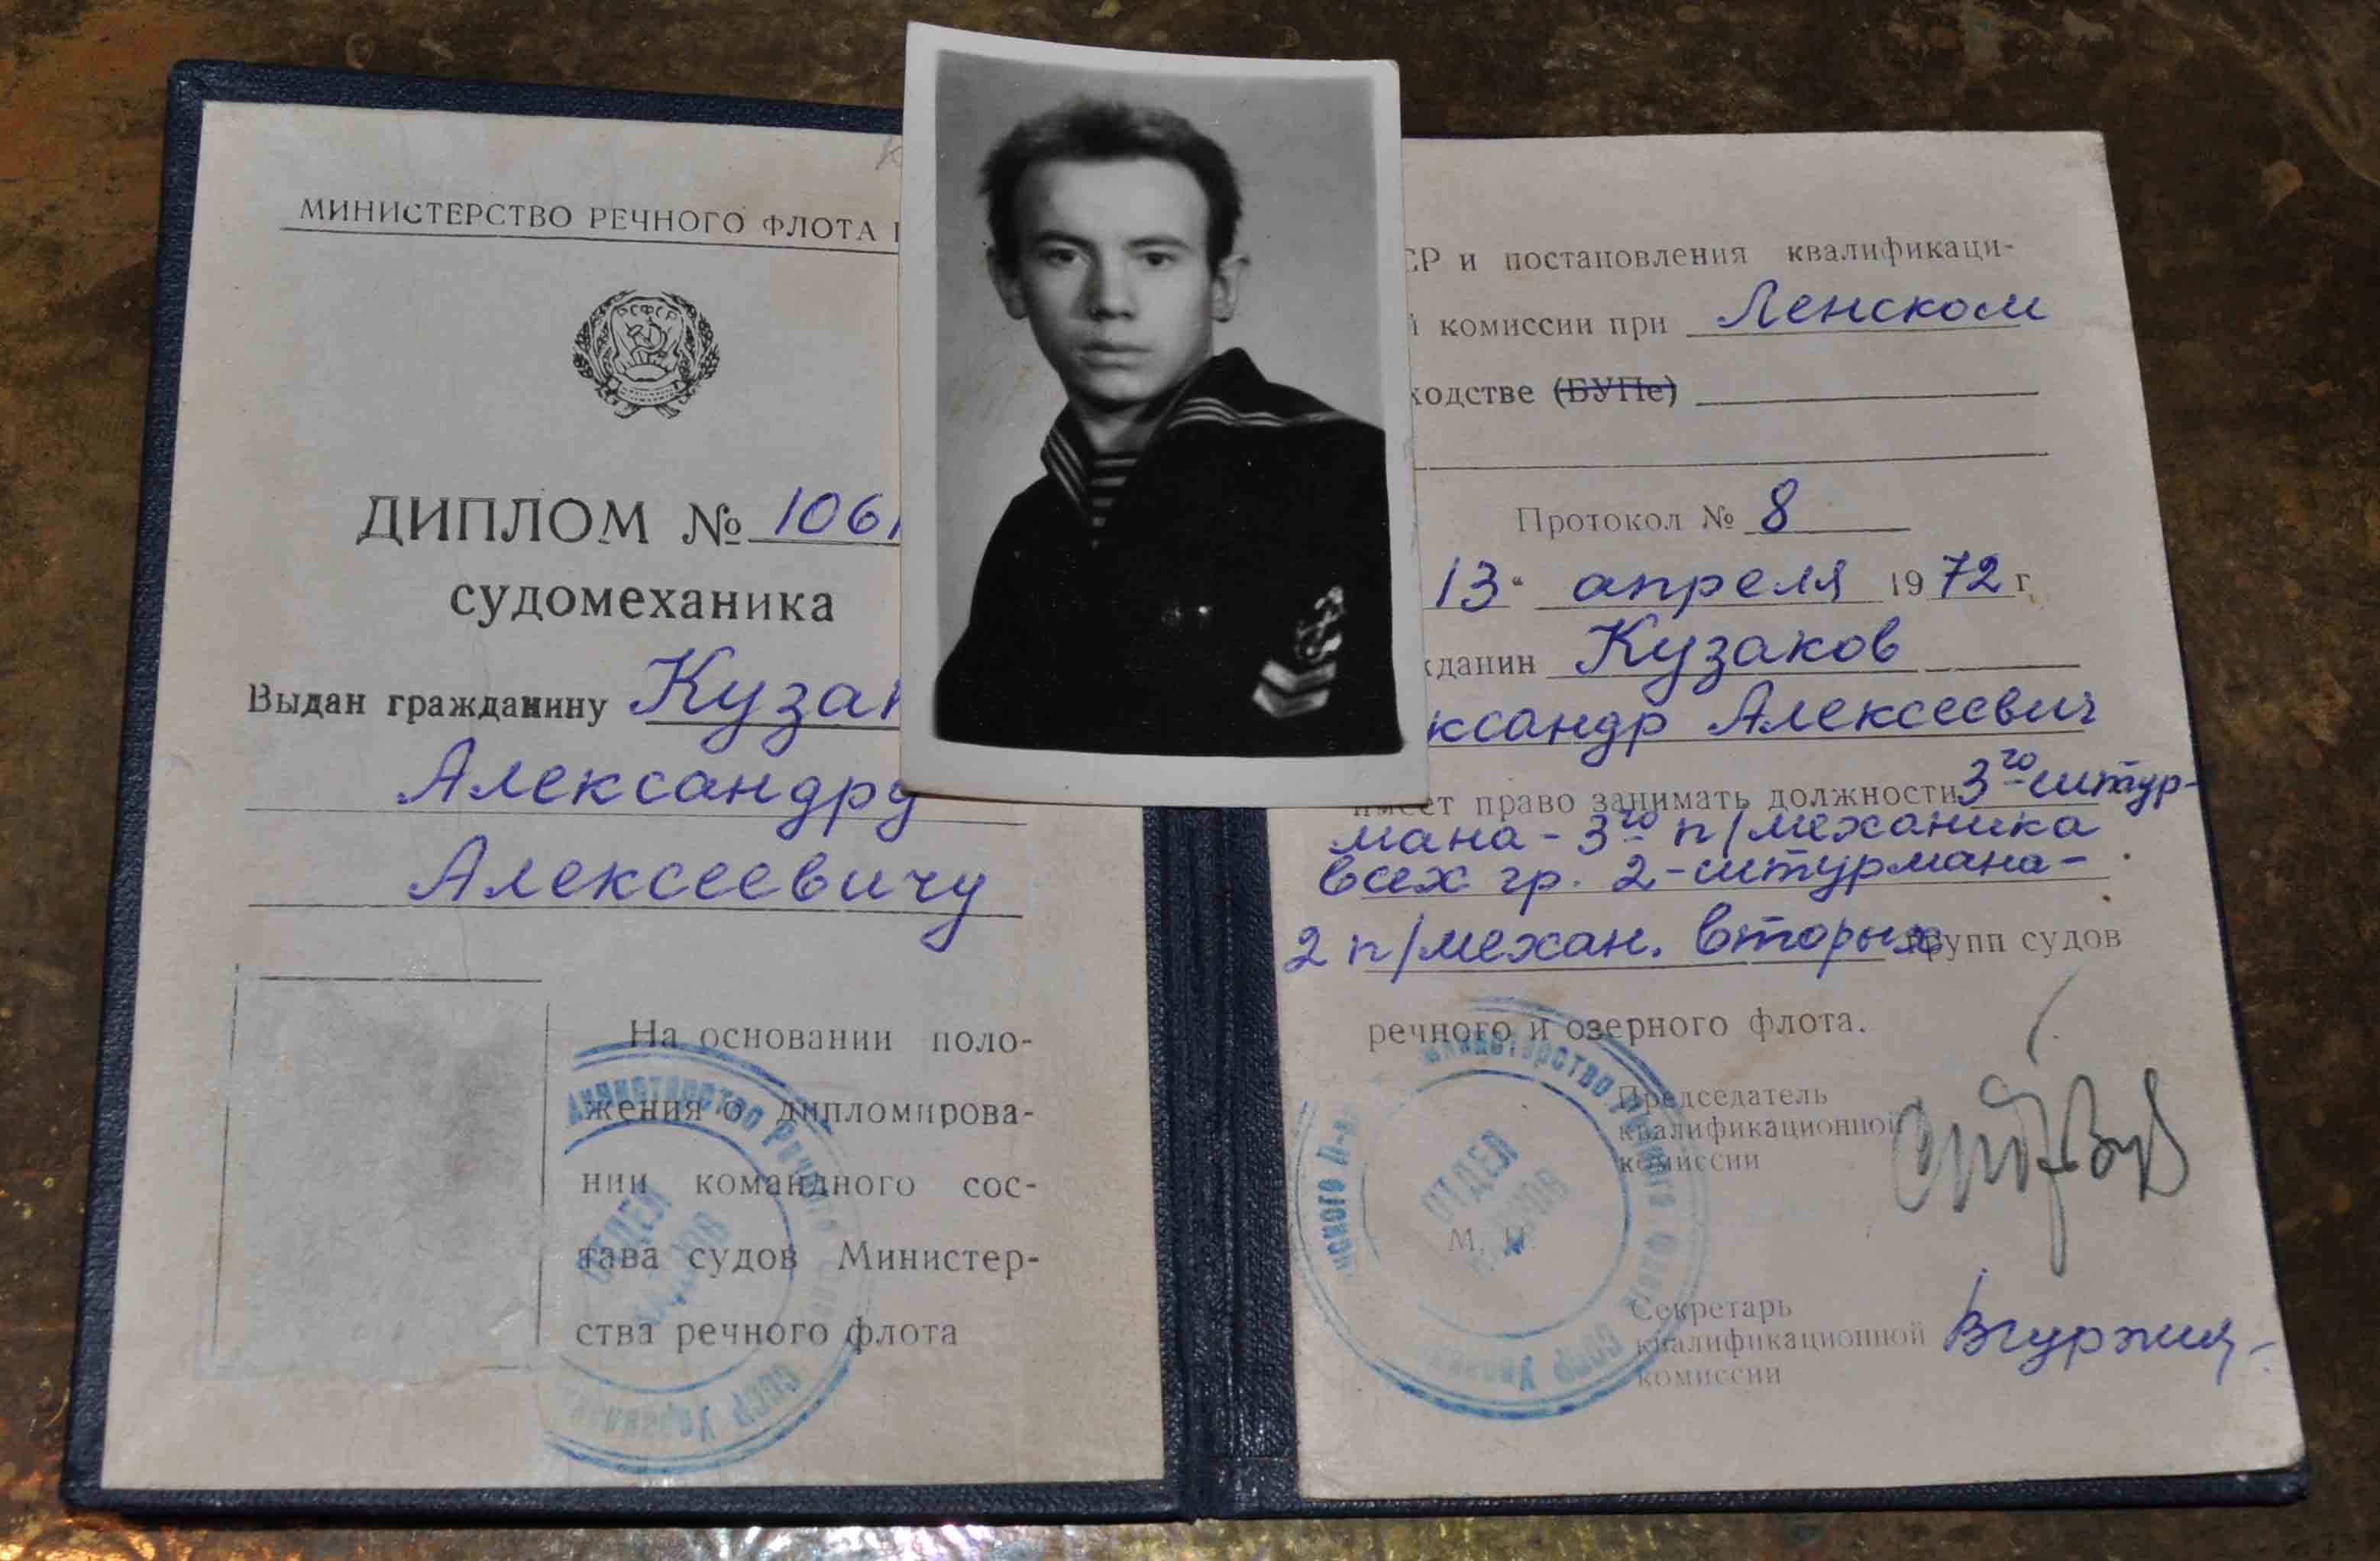 МИНИСТЕРСТВО РЕЧНОГО ФЛОТА
РСФСР
ДИПЛОМ № 1061
судомеханика
Выдан гражданину Кузак
Александру
Алексеевичу
На основании поло-
жения о дипломирова-
нии командного сос-
тава судов Министер-
ства речного флота
Министерство Речного
СССР
ОТДЕЛ
КАДРОВ
СР и постановления квалификаци-
й комиссии при Ленском
ходстве (БУПе)
Протокол № 8
13" апреля 1972 г.
жданин Кузаков
ксандр Алексеевич
имеет право занимать должности 3го штур-
мана - 3го п/механика
всех гр. 2-штурмана-
2 п/механ. вторых групп судов
речного и озерного флота.
Председатель
квалификационной
комиссии
М. П.
Секретарь
квалификационной
комиссии
Министерство Речного Флота
СССР
нского П-ва
ОТДЕЛ
КАДРОВ